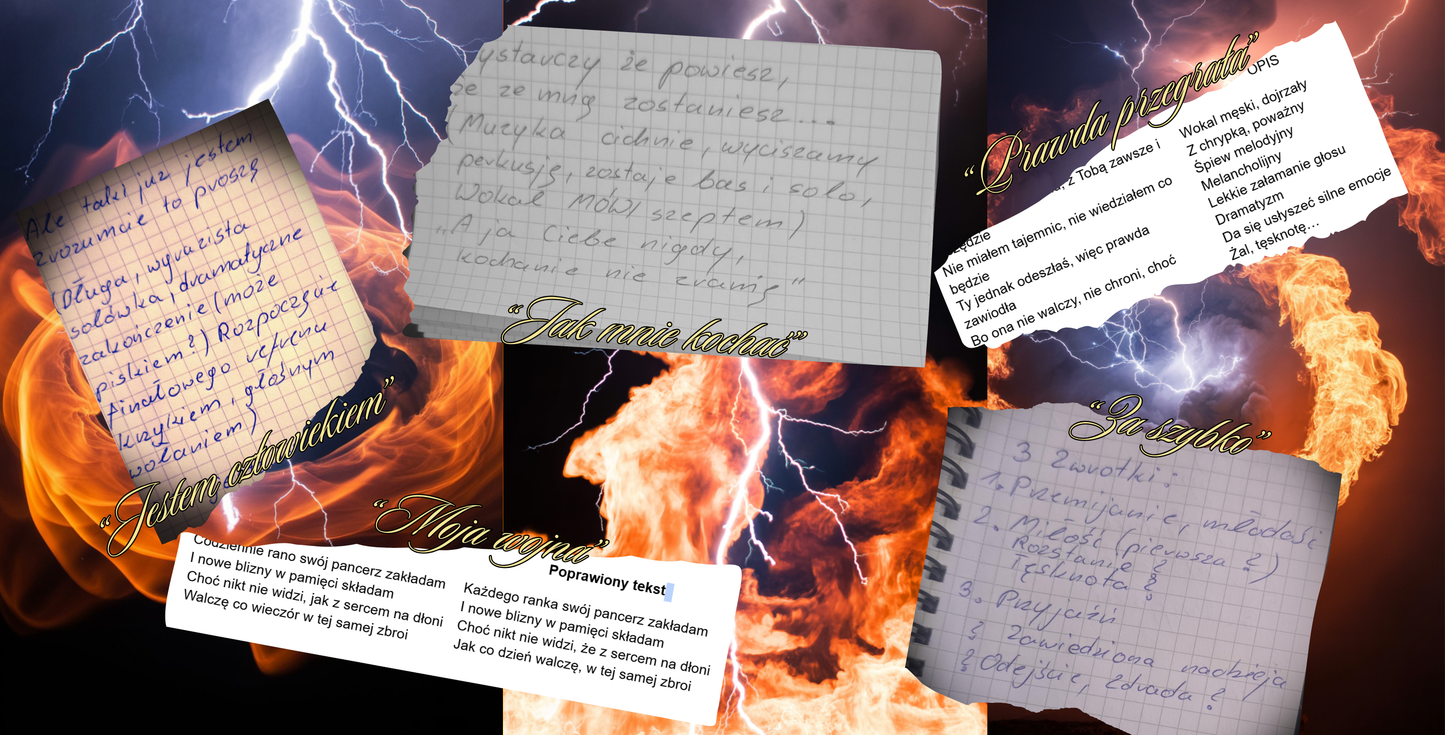 Ale taki już jestem
zrozumcie to proszę
(Długa, wyrazista
solówka, dramatyczne
zakończenie (może
piskiem?) Rozpoczęcie
finałowego refrenu
krzykiem, głośnym
wołaniem)
"Jestem człowiekiem"
ystarczy że powiesz,
że ze mną zostaniesz...
(Muzyka cichnie, wyciszamy
perkusję, zostaje bas i solo,
Wokal MÓWI szeptem)
„A ja Ciebie nigdy,
kochanie nie zranię"
"Jak mnie kochać"
"Moja wojna"
Codziennie rano swój pancerz zakładam
I nowe blizny w pamięci składam
Choć nikt nie widzi, jak z sercem na dłoni
Walczę co wieczór w tej samej zbroi
Poprawiony tekst
Każdego ranka swój pancerz zakładam
I nowe blizny w pamięci składam
Choć nikt nie widzi, że z sercem na dłoni
Jak co dzień walczę, w tej samej zbroi
"Prawda przegrała"
z Tobą zawsze i
będzie
Nie miałem tajemnic, nie wiedziałem co
będzie
Ty jednak odeszłaś, więc prawda
zawiodła
Bo ona nie walczy, nie chroni, choć
OPIS
Wokal męski, dojrzały
Z chrypką, poważny
Śpiew melodyjny
Melancholijny
Lekkie załamanie głosu
Dramatyzm
Da się usłyszeć silne emocje
Żal, tęsknotę...
"Za szybko"
3 zwrotki:
1. Przemijanie, młodość
2. Miłość (pierwsza?)
Rozstanie?
Tęsknota?
3. Przyjaźń
? Zawiedziona nadzieja
? Odejście, zdrada?